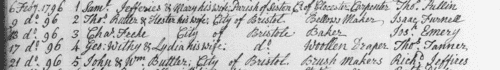 6 Feby. 1796 1 Saml. Jefferies & Mary his wife, Parish of in Co. of Glocester, Carpenter Thos. Pullin
9 do. 96 2 Thos. Rutter & Hester his wife, City of Bristol Bellows Maker, Isaac Purnell
do. 96 3 Chas. Feche City of Bristol Baker Jos. Emery
17 do. 96 4 Geo. Withy & Lydia his wife; do. Woollen Draper Thos. Tanner,
21 do. 96 5 John & Wm. Buttler, City of Bristol, Brush Makers Richd. Jeffries